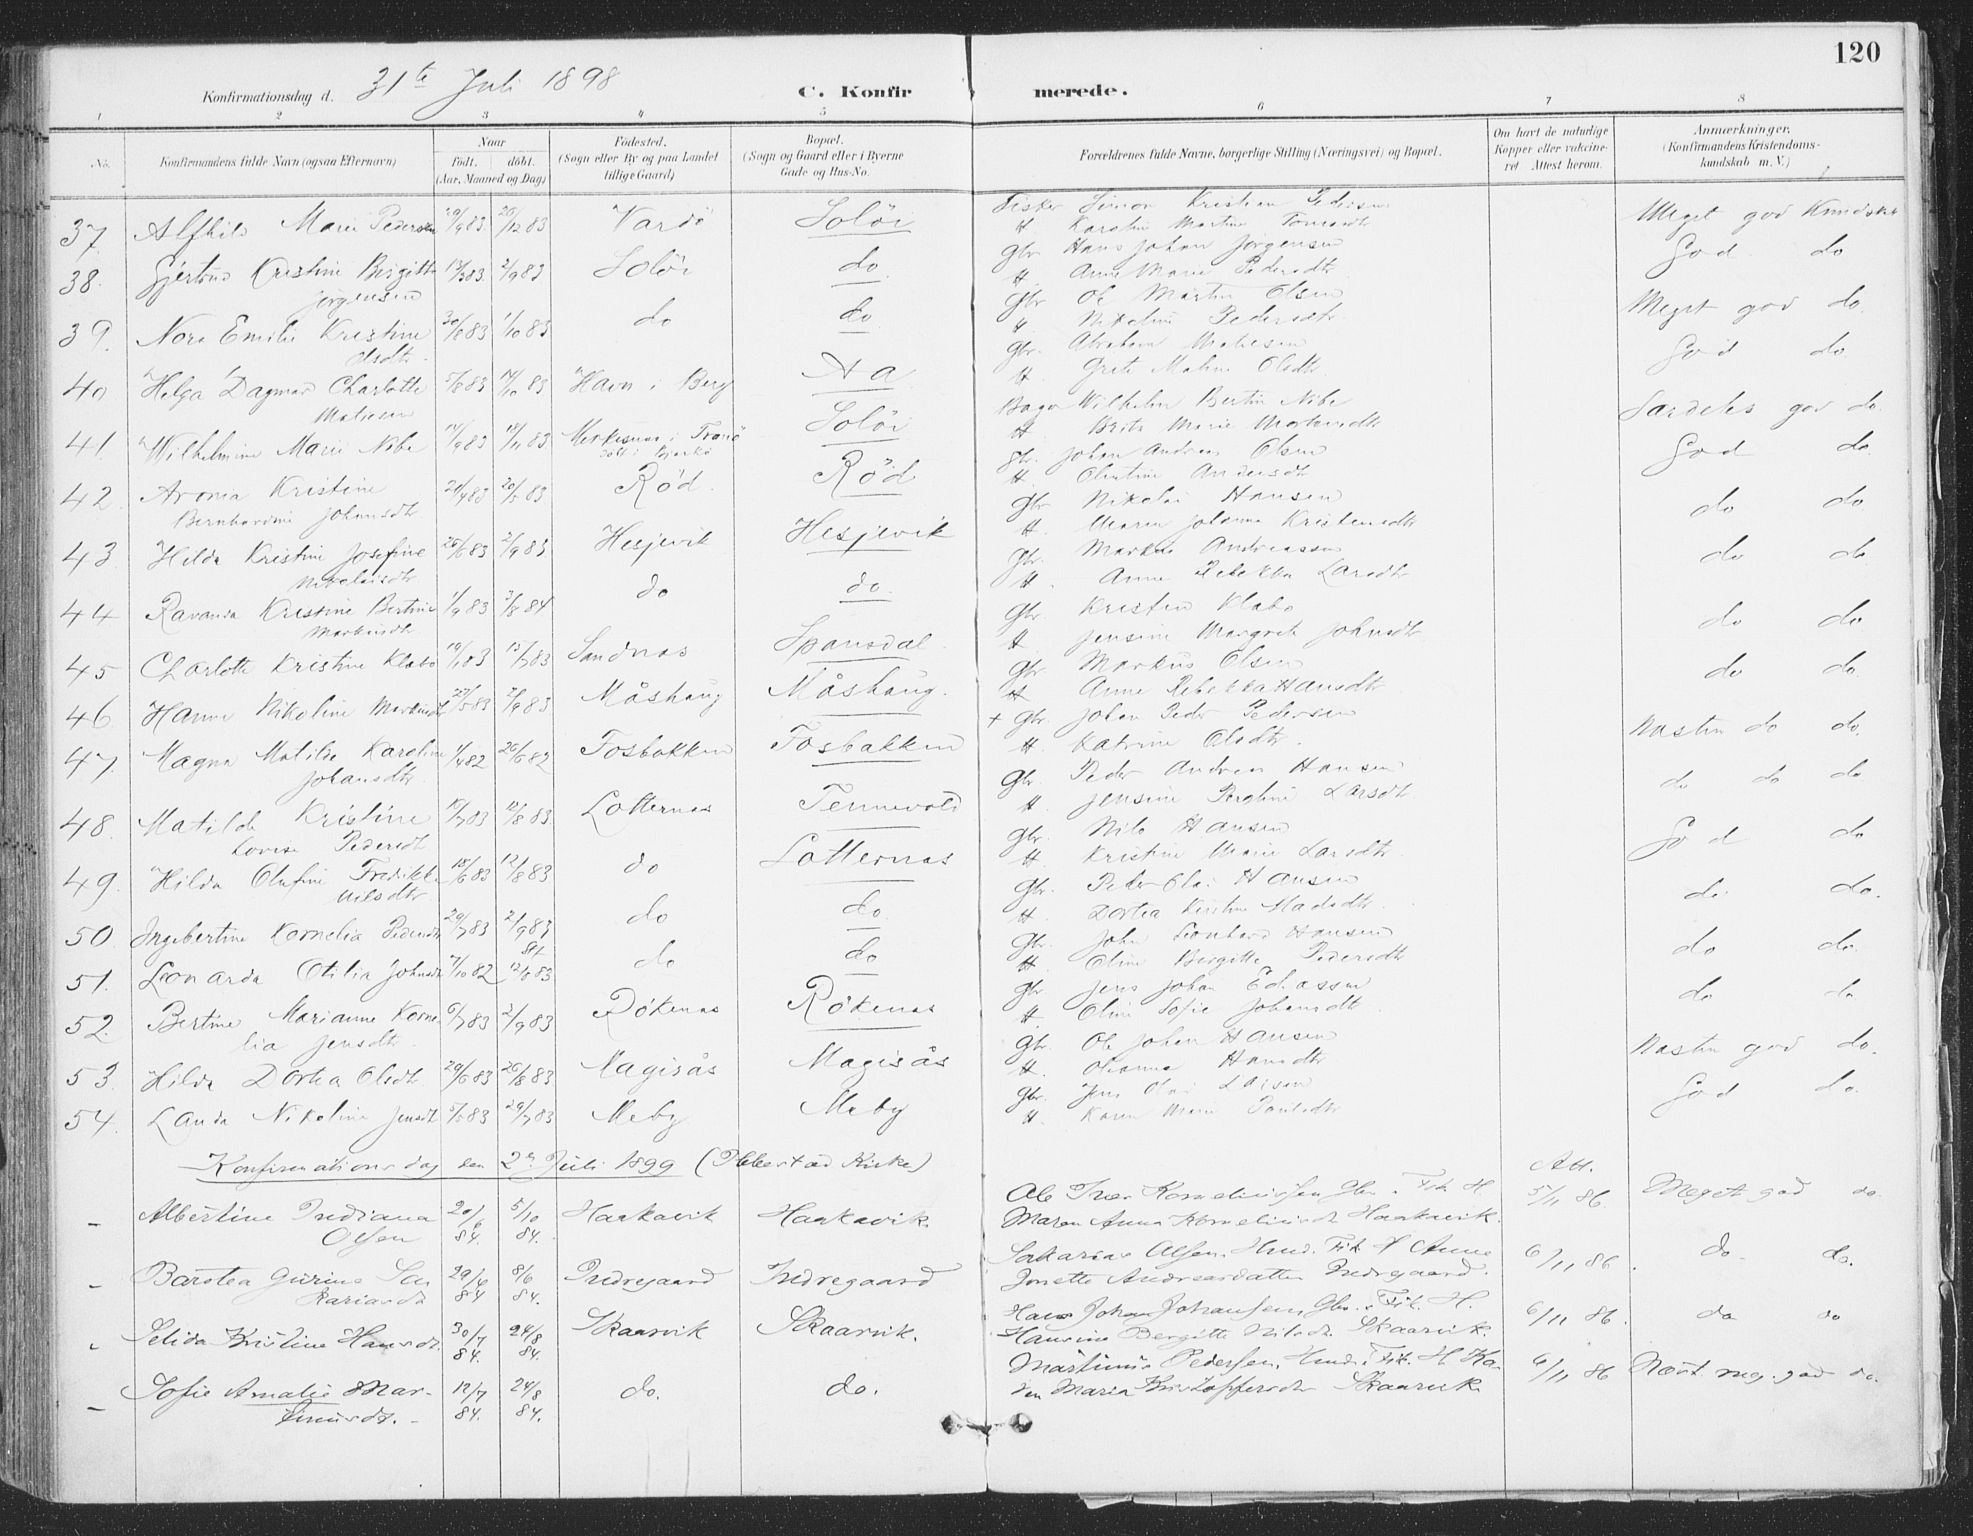 120
Konfirmationsdag d. 31te Juli 1898
C. Konfirmerede.
1 2 3 4 5 6 7 8
No. Konfirmandens fulde Navn (ogsaa Efternavn) Naar født. døbt. (Aar, Maaned og Dag) Fødested. (Sogn eller By og paa Landet tillige Gaard) Bopæl. (Sogn og Gaard eller i Byerne Gade og Hus-No. Forældrenes fulde Navne, borgerlige Stilling (Næringsvei) og Bopæl. Om havt de naturlige Kopper eller vaccineret. Attest herom. Anmærkninger. (Konfirmandens Kristendomskundskab m. V.)
37. Alfhild Marie Pedersen 29/9 83 26/12 83 Vardö Soløi Fisker Simon Kristian Pedersen
H Karolin Martine Tomasdtr Meget god Kundskab
38. Gjertrud Kristine Birgitte Jørgensen 13/3 83 2/9 83 Soløi do Gbr Hans Johan Jørgensen
H Anne Marie Pedersdtr God do
39. Nora Emilie Kristine Olsdtr. 30/8 83 1/10 83 do do Gbr Ole Martin Olsen
H Nikoline Pedersdtr. Meget god do.
40 Helga Dagmar Charlotte 5/8 83 14/10 83 Havn i Berg Aa Gbr. Abraham
H Grete Maline Olsdtr. God do
41. Wilhelmine Marie Nibe 14/9 83 18/11 83 i Tranö Soløi Wilhelm Bertin Nibe
H Berit Marie Særdeles god do.
42. Arona Kristine Bernhardine Johansdtr. 24/4 83 20/5 83 Röd. Röd Gbr. Johan Andreas Olsen
H Andersdtr God do
43. Hilda Kristine Josefine Nikolaisdtr 26/6 83 2/9 83 Hesjevik Hesjevik Gbr Nikolai Hansen
H. Maren Johanna Kristensdtr do do
44 Ravanda Kristine Bertine Markusdtr 1/9 83 3/8 84 do do. Gbr Markus Andreassen
H. Anne Rebekka Larsdtr do do
45 Charlotte Kristine Klabo 83 15/7 83 Sandnas Spansdal. Gbr Kristen Klabo
H Jensine Margrete Johnsdtr do do
46. Hanne Nikoline Markusdtr 27/5 83 2/9 83 Måshaug Måshaug. Gbr Markus Olsen
H Anne Rebekka Hansdtr do do.
47. Magna Matilde Karoline Johansdtr. 1/4 82 26/6 82 Fosbakken Fosbakken + Gbr Johan Peder Pedersen
H Katrine Olsdtr. Næsten do do.
48. Matilde Kristine Lovise Pedersdtr 10/7 83 12/8 83 Lotternas Tennevold Gbr Peder Andreas Hansen
H. Jensine Larsdtr do do do
49. Hilda Olufine Fredrikke Nilsdtr 18/6 83 12/8 83 do Lotternas Gbr Nils Hansen
H Kristine Marie Larsdtr. God do
50. Ingebertine Kornelia Pedersdtr 29/7 83 2/9 83 do do Gbr. Peder Olai Hansen
H. Dortea Kirstine Madsdtr. do. do.
51. Leonarda Otilia Johnsdtr 7/10 82 St. 12/8 83 do do Gbr. John Leonhard Hansen
H Oline Birgitte Pedersdtr do do.
52. Bertine Marianne Kornelia Jensdtr. 6/7 83 2/9 83 Rökenas Rökenas Gbr. Jens Johan Eliassen
H. Oline Sofie Johansdtr. do do
53. Hilda Dortea Olsdtr 29/6 83 26/8 83 Magisås Magisås Gbr. Ole Johan Hansen
H. Hansdtr Næsten god do.
54. Landa Nikoline Jensdtr 5/5 83 29/7 83 Meby Meby Gbr. Jens Olai Larsen
H Karen Marie God do.
Konfirmationsdag den 2n Juli 1899 (Ibbestad Kirke) Att.
- Albertine Indiana Olsen 20/6 84. 5/10 84. Haakavik Haakavik Ole Iver Korneliussen Gbr. Fisk. H.
Maren Anna Korneliusdtr Haakavik. 5/11 86 Meget god do.
- Barstea Gurine Sakariasdtr 29/4 84 8/6 84. Indregaard Indregaard Sakarias Olsen Hmd. Fisk H Anne
Jonette Andreasdatter Indregaard. 6/11 86. do do.
- Selida Kristine Hansdt. 30/7 84. 24/8 84. Skaarvik Skaarvik. Hans Johan Johansen, Gbr. Fisk. H.
Hansine Bergitte Nilsdtr Skaarvik. 6/11 86. do do
- Sofie Amalie Martinusdt. 12/7 84. 24/8 84. do. do. Martinus Pedersen, Hmd. Fisk. H. Ka-
ren Maria Kristoffersdtr Skaarvik 6/11 86 Næst. meg. god do.